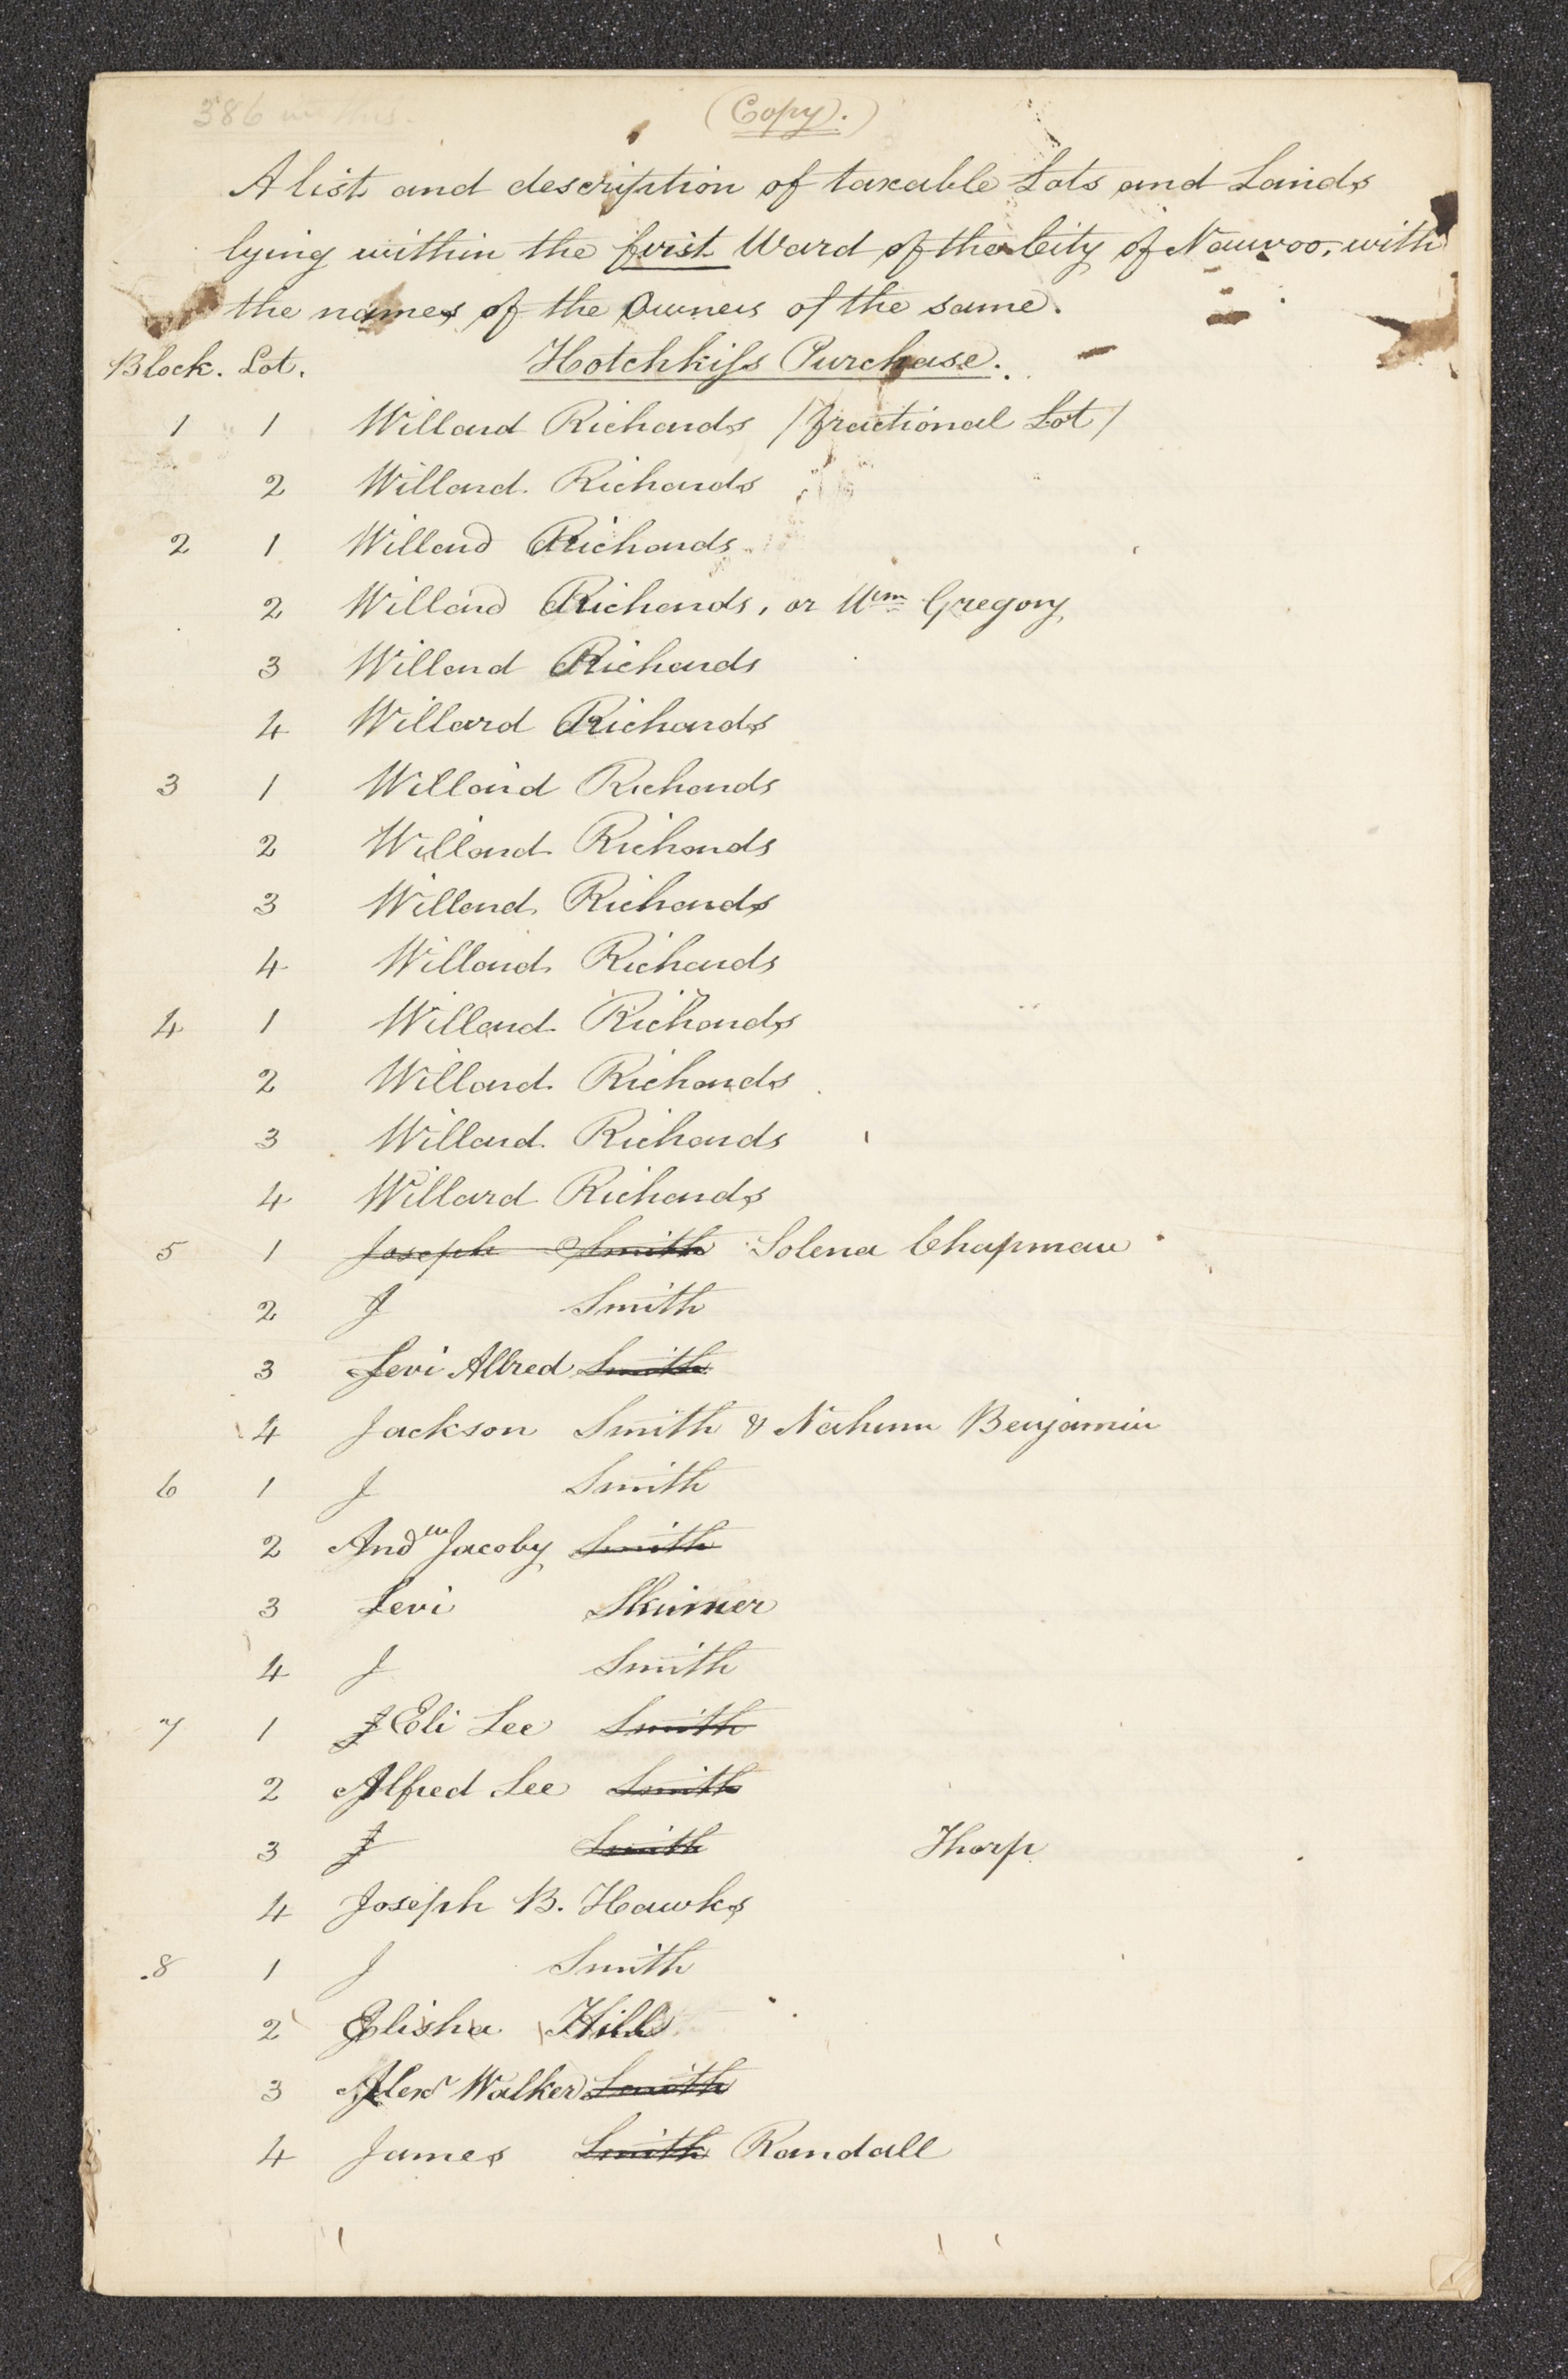 386 in this.
(Copy.)
A list and description of taxable Lots and Lands
lying within the first Ward of the City of Nauvoo, with
the names of the Owners of the same.
Block. Lot. Hotchkiss Purchase.
1 1 Willard Richards /fractional Lot/
2 Willard Richards
2 1 Willard Richards
2 Willard Richards, or Wm Gregory
3 Willard Richards
4 Willard Richards
3 1 Willard Richards
2 Willard Richards
3 Willard Richards
4 Willard Richards
4 1 Willard Richards
2 Willard Richards
3 Willard Richards
4 Willard Richards
5 1 Joseph Smith Solena Chapman
2 J Smith
3 Levi Allred Smith
4 Jackson Smith & Nahum Benjamin
6 1 J Smith
2 Andw Jacoby Smith
3 Levi Skinner
4 J Smith
7 1 J Eli Lee Smith
2 Alfred Lee Smith
3 J Smith Thorp
4 Joseph B. Hawks
8 1 J Smith
2 Elisha Hills
3 Alexr Walker Smith
4 James Smith Randall